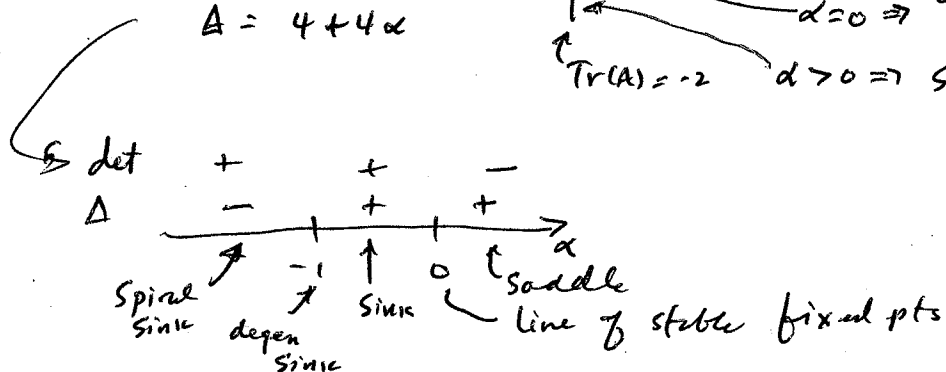 Δ = 4 + 4α
α = 0 ⇒
Tr(A) = -2
α > 0 ⇒ S
det + + -
Δ - + +
-1 0 α
Spiral sink
degen sink
Sink
Saddle
line of stable fixed pts